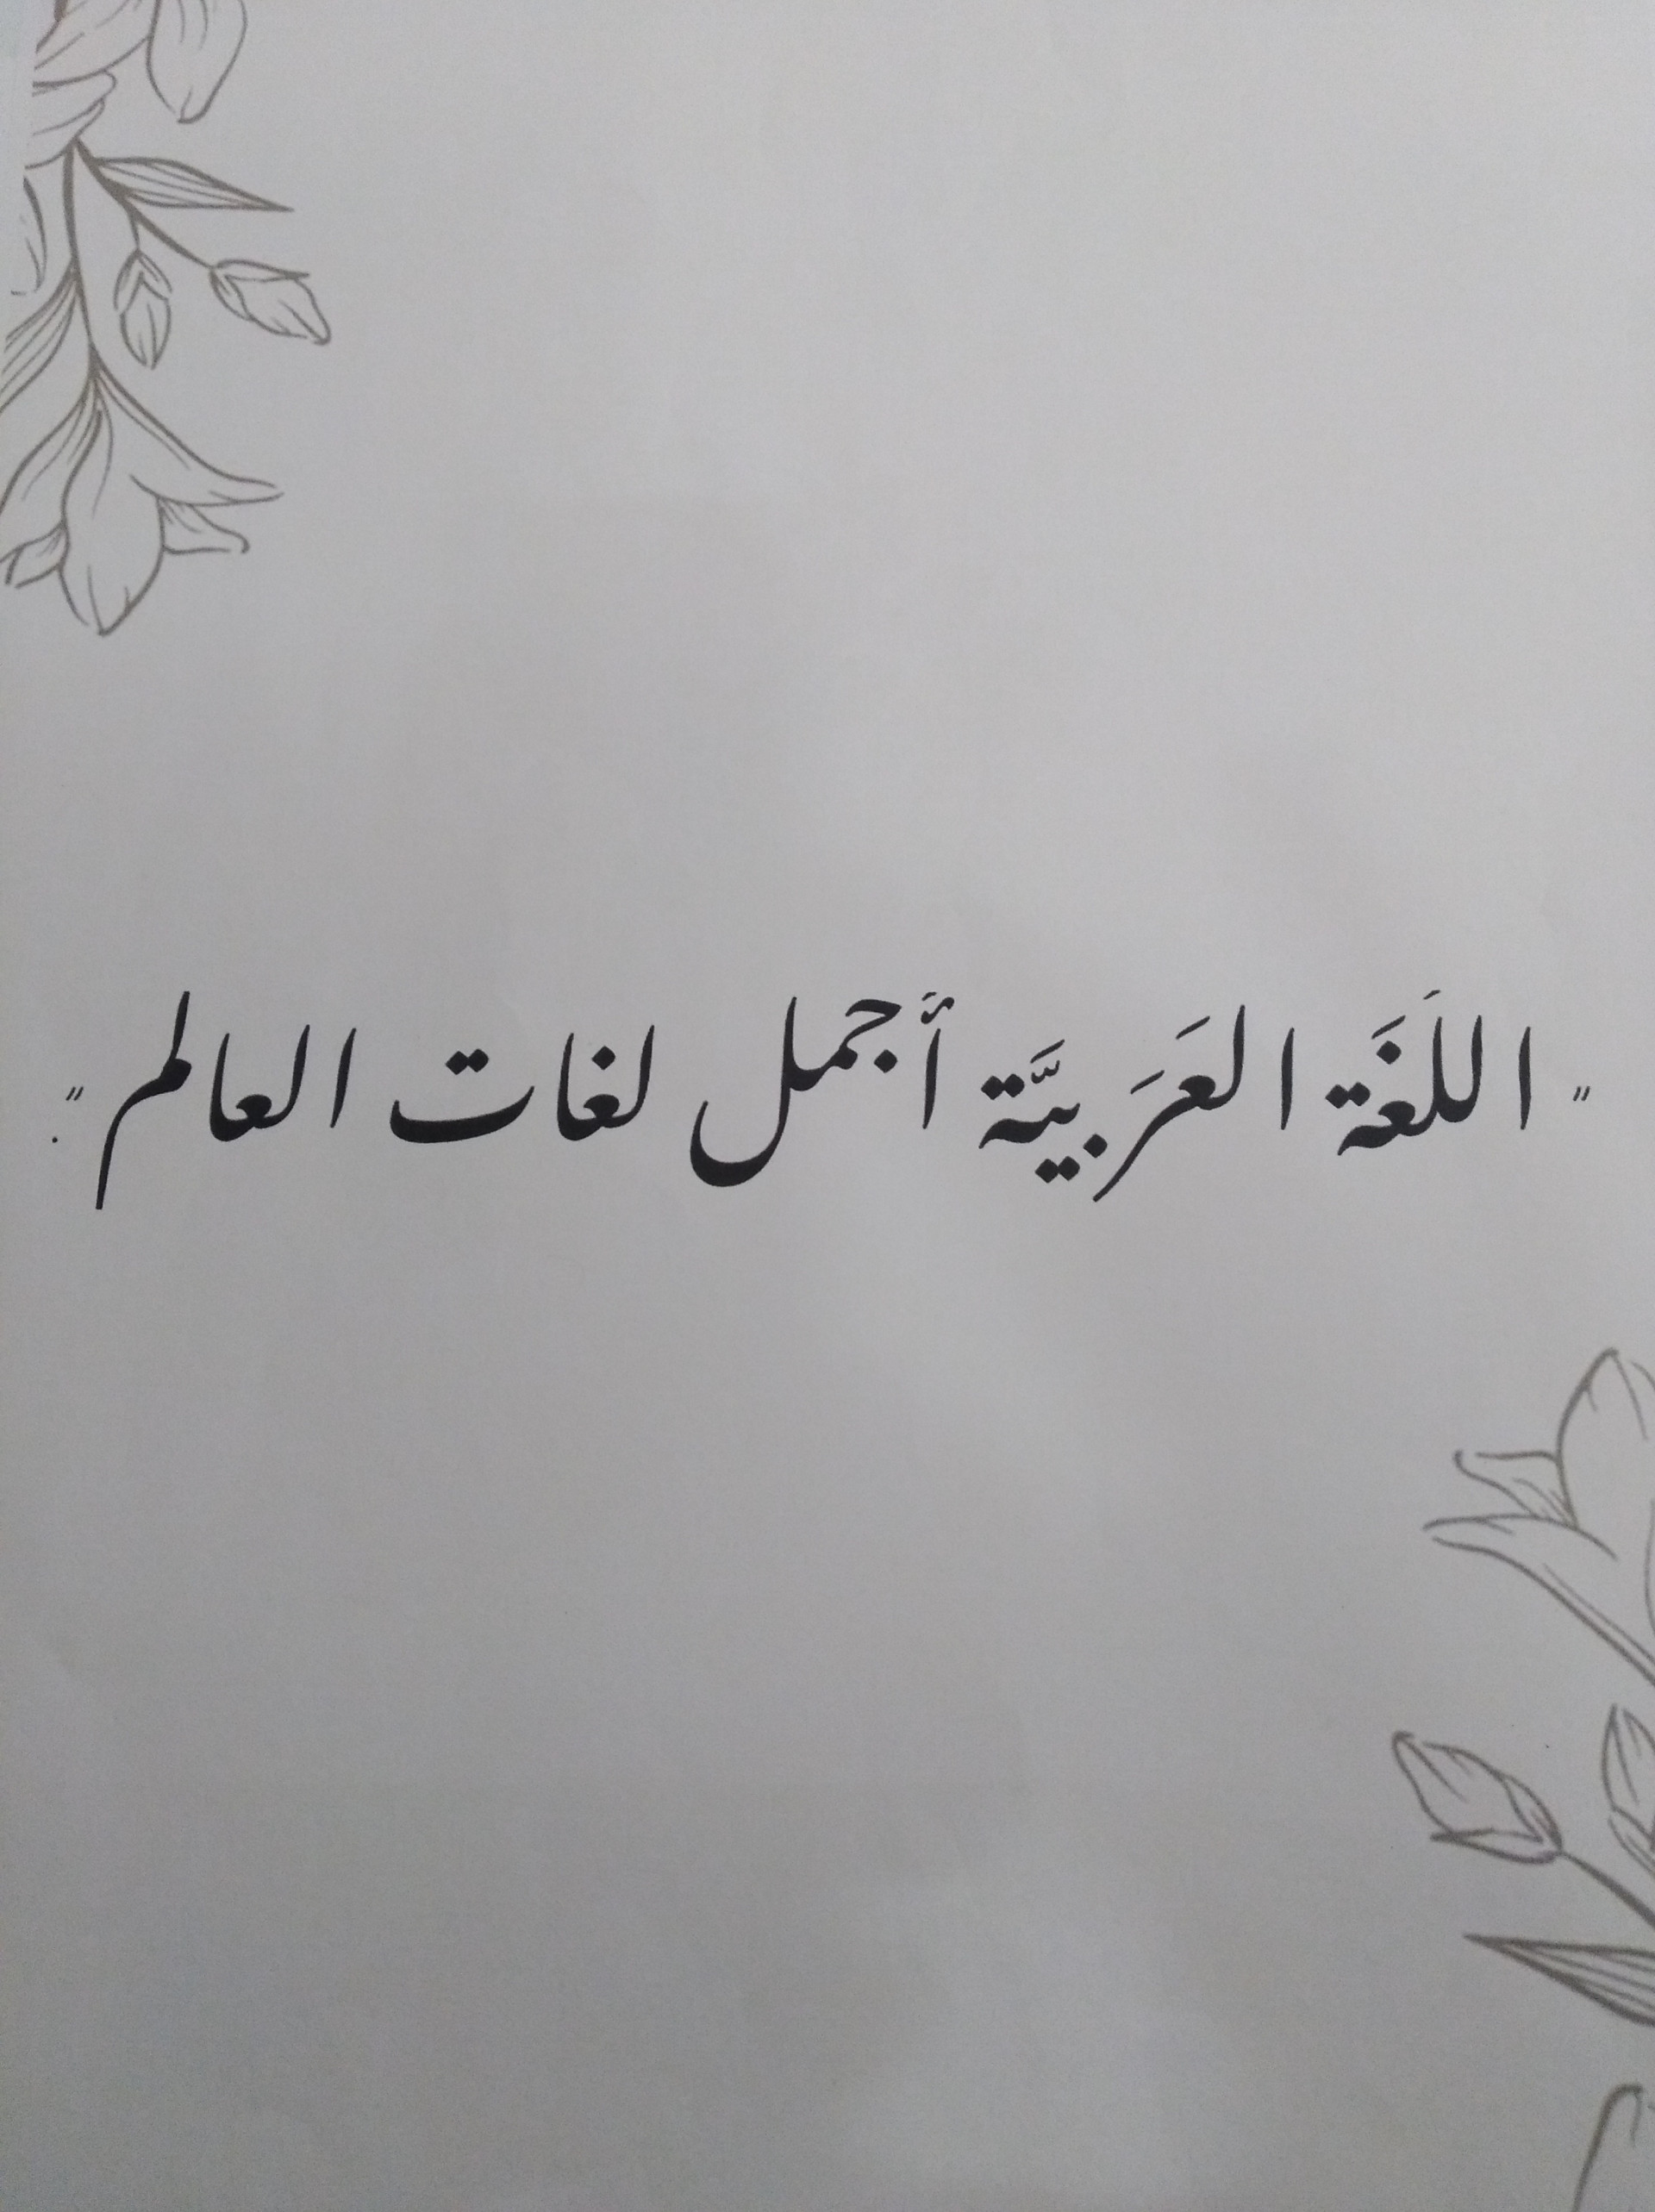 "اللَغَة العَرَبيَّة أجمل لغات العالم".